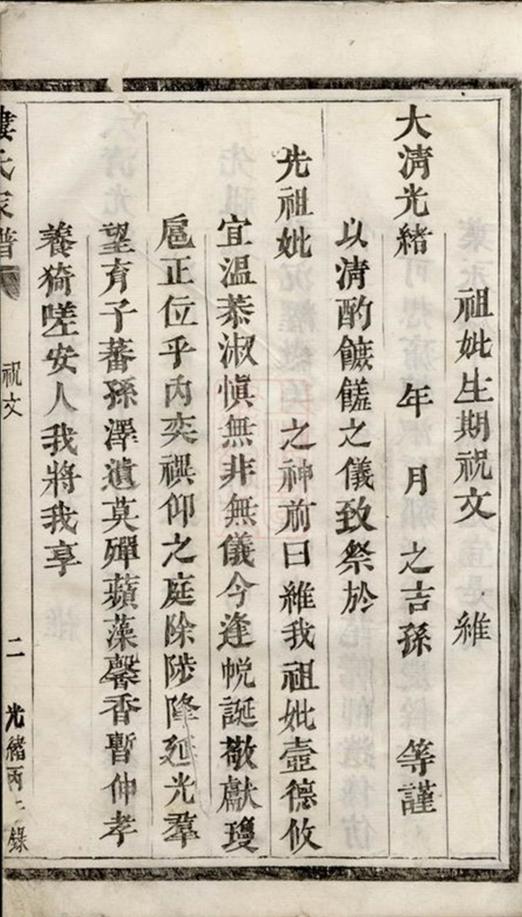 祖妣生期祝文　維
大清光緒　年　月　之吉孫　等謹
以清酌饌饈之儀致祭於
先祖妣　之神前曰維我祖妣壼德攸
宜溫恭淑慎無非無儀今逢帨誕敬獻瓊
巵正位乎內奕禩仰之庭除陟降延光羣
望育子蕃孫澤遺莫殫蘋藻馨香暫伸孝
養猗嗟安人我將我享
婁氏家譜
祝文
二
光緒丙 錄